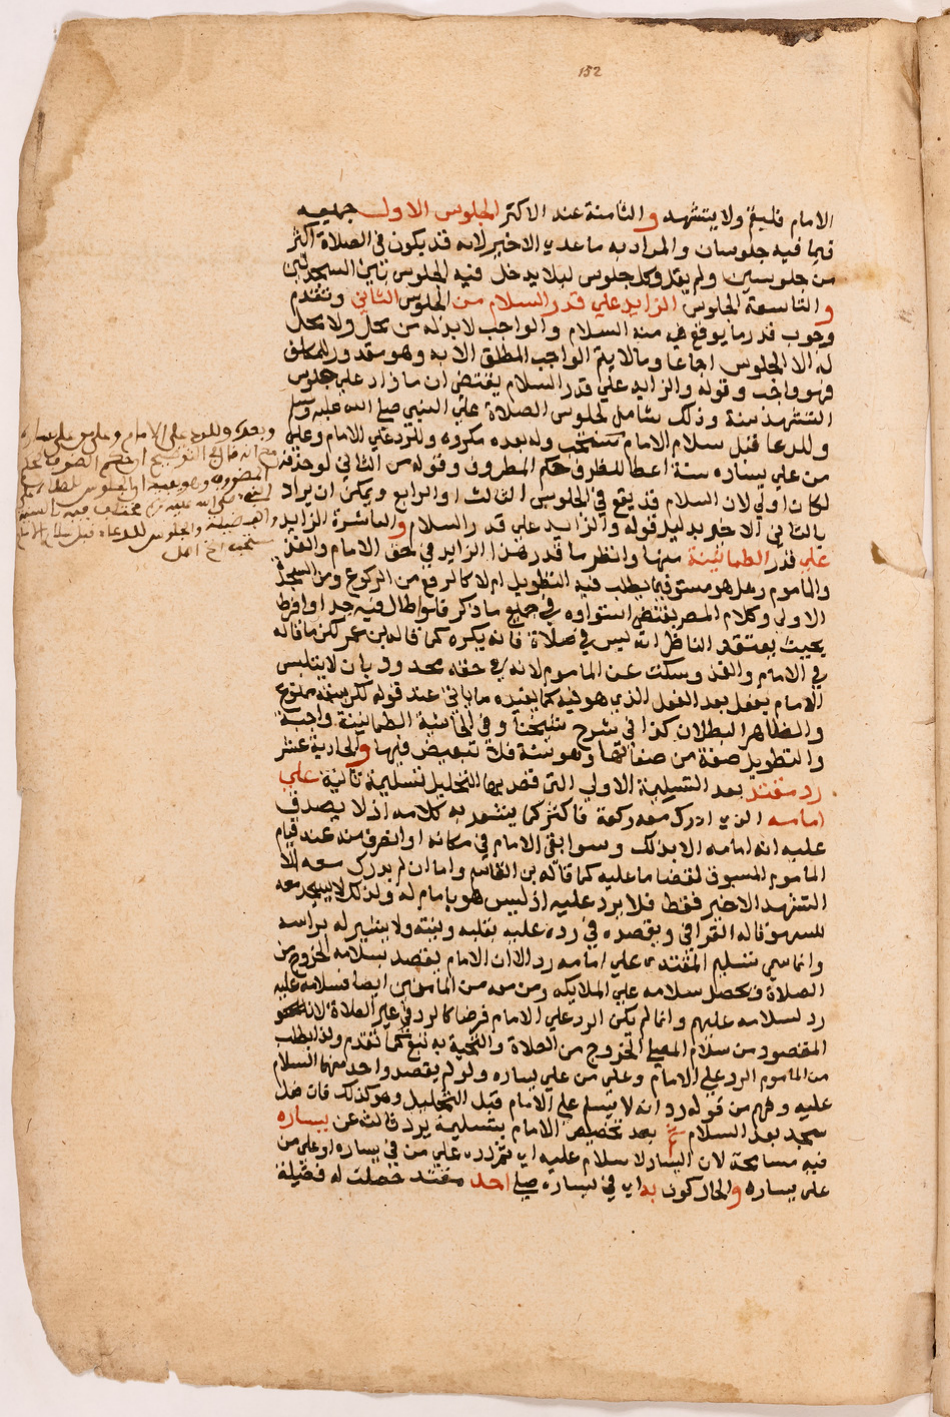 152
الامام فليقم ولا يتشهد والثامنة عند الاكثر الجلوس الاول جميعه
فيما فيه جلوسان والمراد به ما عدي الاخير لانه قد يكون في الصلاة اكثر
من جلوسين ولم يقل وكل جلوس ليلا يدخل فيه الجلوس بين السجدتين
والتاسعة الجلوس الزايد علي قدر السلام من الجلوس الثاني وتقدم
وجوب قدر ما يوقع في منه السلام والواجب لا بد له من محل ولا محل
له الا الجلوس اجماعا وما لا يتم الواجب المطلق الا به وهو مقدور للمكلف
فهو واجب وقوله والزايد علي قدر السلام يقتضي ان ما زاد علي جلوس
التشهد سنة وذلك شامل لجلوس الصلاة علي النبي صلي الله عليه وسلم
وللدعا قبل سلام الامام مستحب وله بعده مكروه وللرد علي الامام وعلي
من علي يساره سنة اعطا للظرف حكم المظروف وقوله من الثاني لو حذفه
لكان اولي لان السلام قد يقع في الجلوس الثالث او الرابع ويمكن ان يراد
بالثاني الاخر بدليل قوله والزايد علي قدر السلام والعاشرة الزايد
علي قدر الطمانينة منها وانظر ما قدر هذا الزايد في حق الامام والفذ
والماموم وهل هو مستو فيما يطلب فيه التطويل ام لا كالرفع من الركوع ومن السجدة
الاولي وكلام المص يقتضي استواوه في جميع ما ذكر فلو اطال فيه جدا وافرط
بحيث يعتقد الناظر انه ليس في صلاة فانه يكره كما قاله بن عمر لكن ما قاله
في الامام والفذ وسكت عن الماموم لانه في حقه محدود بان لا يتلبس
الامام بفعل بعد الفعل الذي هو فيه كما يفيده ما ياتي عند قوله لكن سبقه ممنوع
والظاهر البطلان كذا في شرح شيخنا وفي الحاشية الطمانينة واجبة
والتطويل صفة من صفاتها وهو سنة فلا تبعيض فيها والحادية عشر
رد مقتد بعد التسليمة الاولي التي قصد بها التحليل تسليمة ثانية علي
امامه الذي ادرك معه ركعة فاكثر كما يشعر به كلامه اذ لا يصدق
عليه انه امامه الا بذلك وسوا بقي الامام في مكانه او انصرف منه عند قيام
الماموم المسبوق لقضا ما عليه كما قاله بن القاسم واما ان لم يدرك معه الا
التشهد الاخير فقط فلا يرد عليه اذ ليس هو بامام له ولذلك لا يسجد معه
للسهو قاله القرافي ويقصده في رده عليه بقلبه ونيته ولا يشير له براسه
وانما سمي تسليم المقتدي علي امامه رد الان الامام يقصد بسلامه الخروج من
الصلاة ويحصل سلامه علي الملايكة ومن معه من المامومين ايضا فسلامه عليه
رد لسلامه عليهم وانما لم يكن الرد علي الامام فرضا كالرد في غير الصلاة لان
المقصود من سلام المصلي الخروج من الصلاة والتحية به تبع كما تقدم ولذا يطلب
من الماموم الرد علي الامام وعلي من علي يساره ولو لم يقصد واحد منهما السلام
عليه وفهم من قوله رد انه لا يسلم علي الامام قبل التحليل وهو كذلك فان فعل
سجد بعد السلام ثم بعد تخصيص الامام بتسليمة يرد ثالثة عن يساره
فيه مسامحة لان اليسار لا سلام عليه اي ثم رد علي من في يساره او علي من
علي يساره والحال كون به اي في يساره صلي احد مقتد حصلت له فضيلة
وبعده وللرد علي الامام وعلي من علي يساره